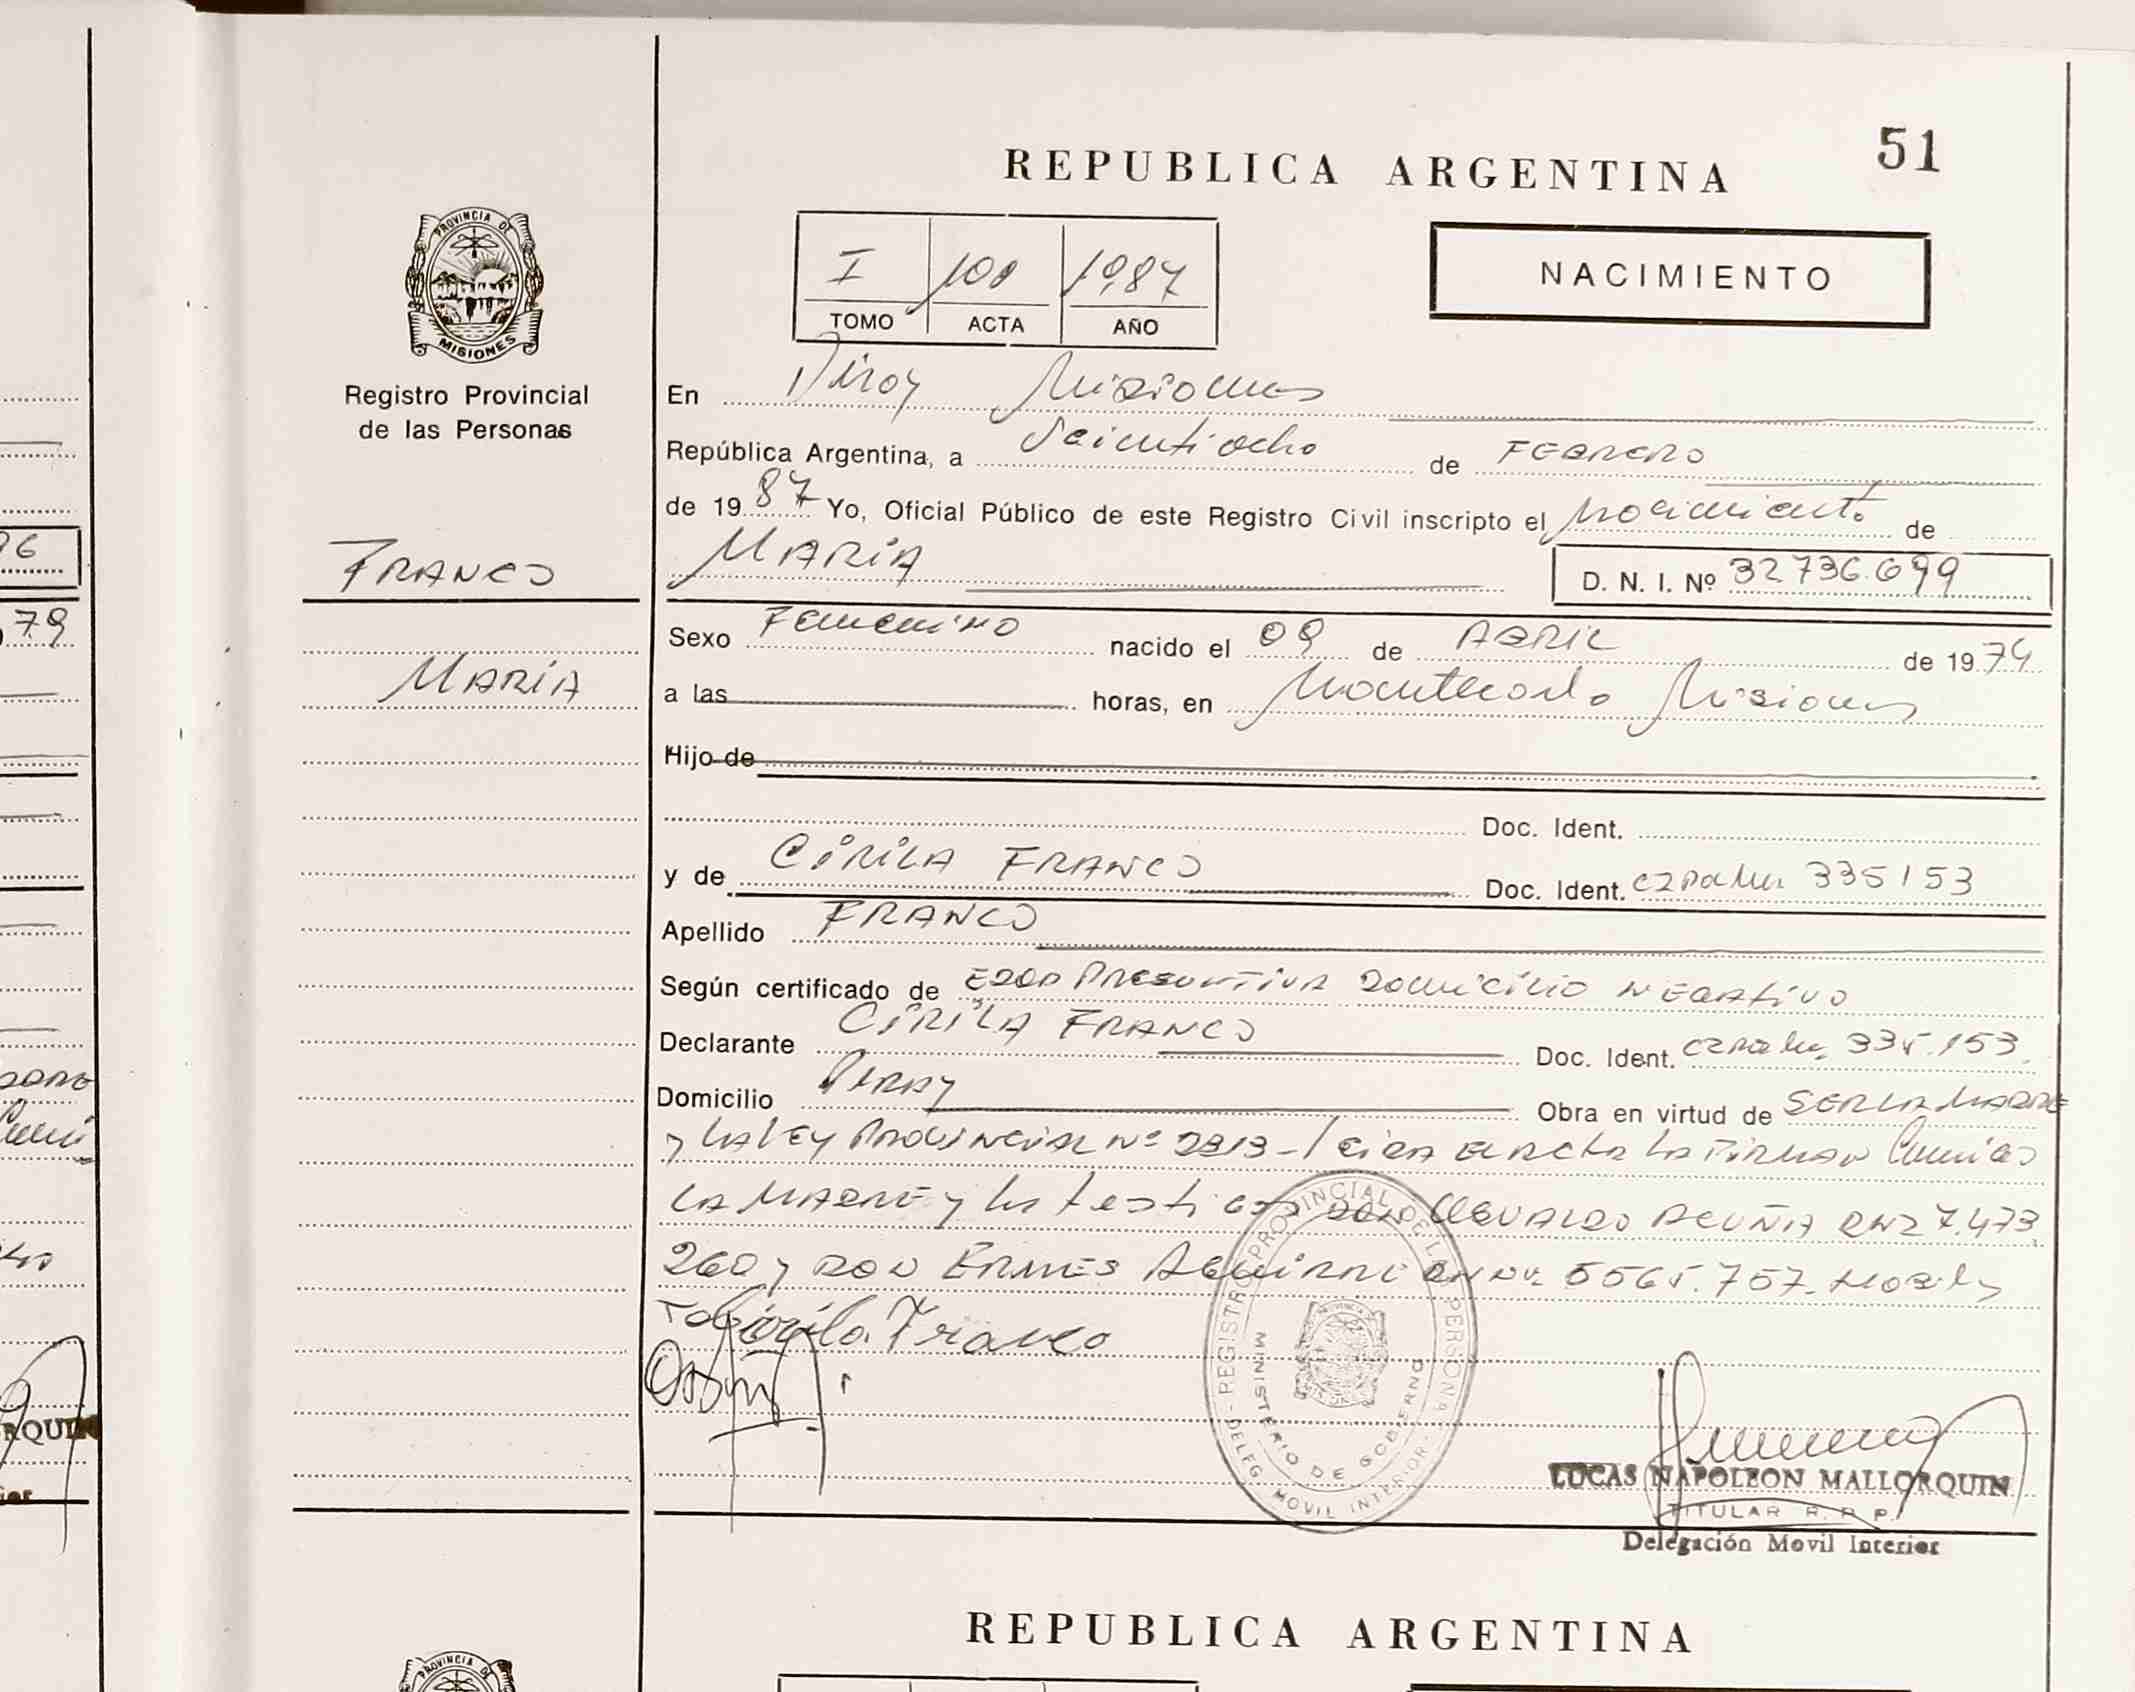 REPUBLICA ARGENTINA
51
PROVINCIA DE
MISIONES
Registro Provincial
de las Personas
I 100 1987
TOMO ACTA AÑO
NACIMIENTO
En Piray Misiones
República Argentina, a Veintiocho de FEBRERO
de 1987 Yo, Oficial Público de este Registro Civil inscripto el Nacimiento de
FRANCO
MARIA
D. N. I. Nº 32736.699
MARIA
Sexo Femenino nacido el 09 de ABRIL de 1974
a las horas, en Montecarlo Misiones
Hijo de
Doc. Ident.
y de CIRILA FRANCO Doc. Ident. 335153
Apellido FRANCO
Según certificado de EDAD PRESUNTIVA DOMICILIO NEGATIVO
Declarante CIRILA FRANCO Doc. Ident. 335.153
Domicilio PIRAY Obra en virtud de SER LA MADRE
y LA LEY PROVINCIAL Nº EL ACTA LA FIRMAN
LA MADRE y los testigos DON OSVALDO ACUÑA DNI 7.473
260 y DON ERMES AGUIRRE 5565.757
Cirila Franco
REGISTRO PROVINCIAL DE LAS PERSONAS
DELEG. MOVIL INTERIOR
MINISTERIO DE GOBIERNO
LUCAS NAPOLEON MALLORQUIN
TITULAR R. P. P.
Delegación Movil Interior
REPUBLICA ARGENTINA
PROVINCIA DE
96
79
RQUIN